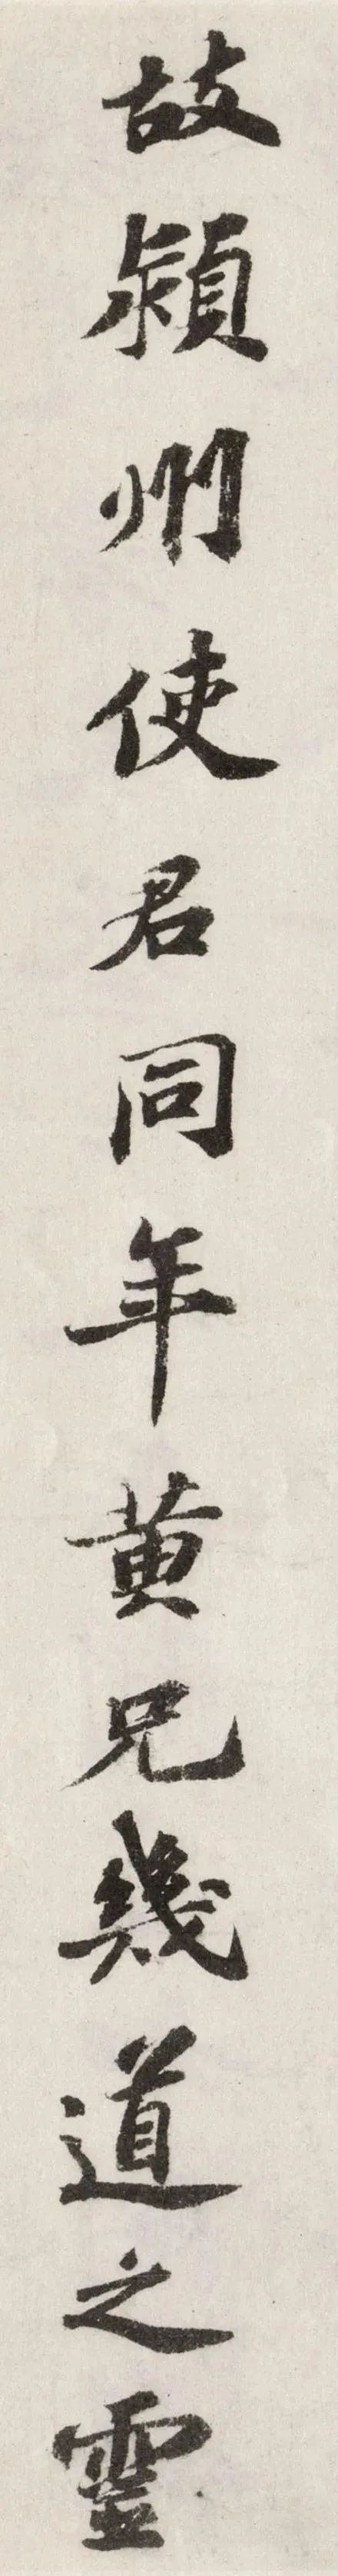 故潁州使君同年黃兄幾道之靈